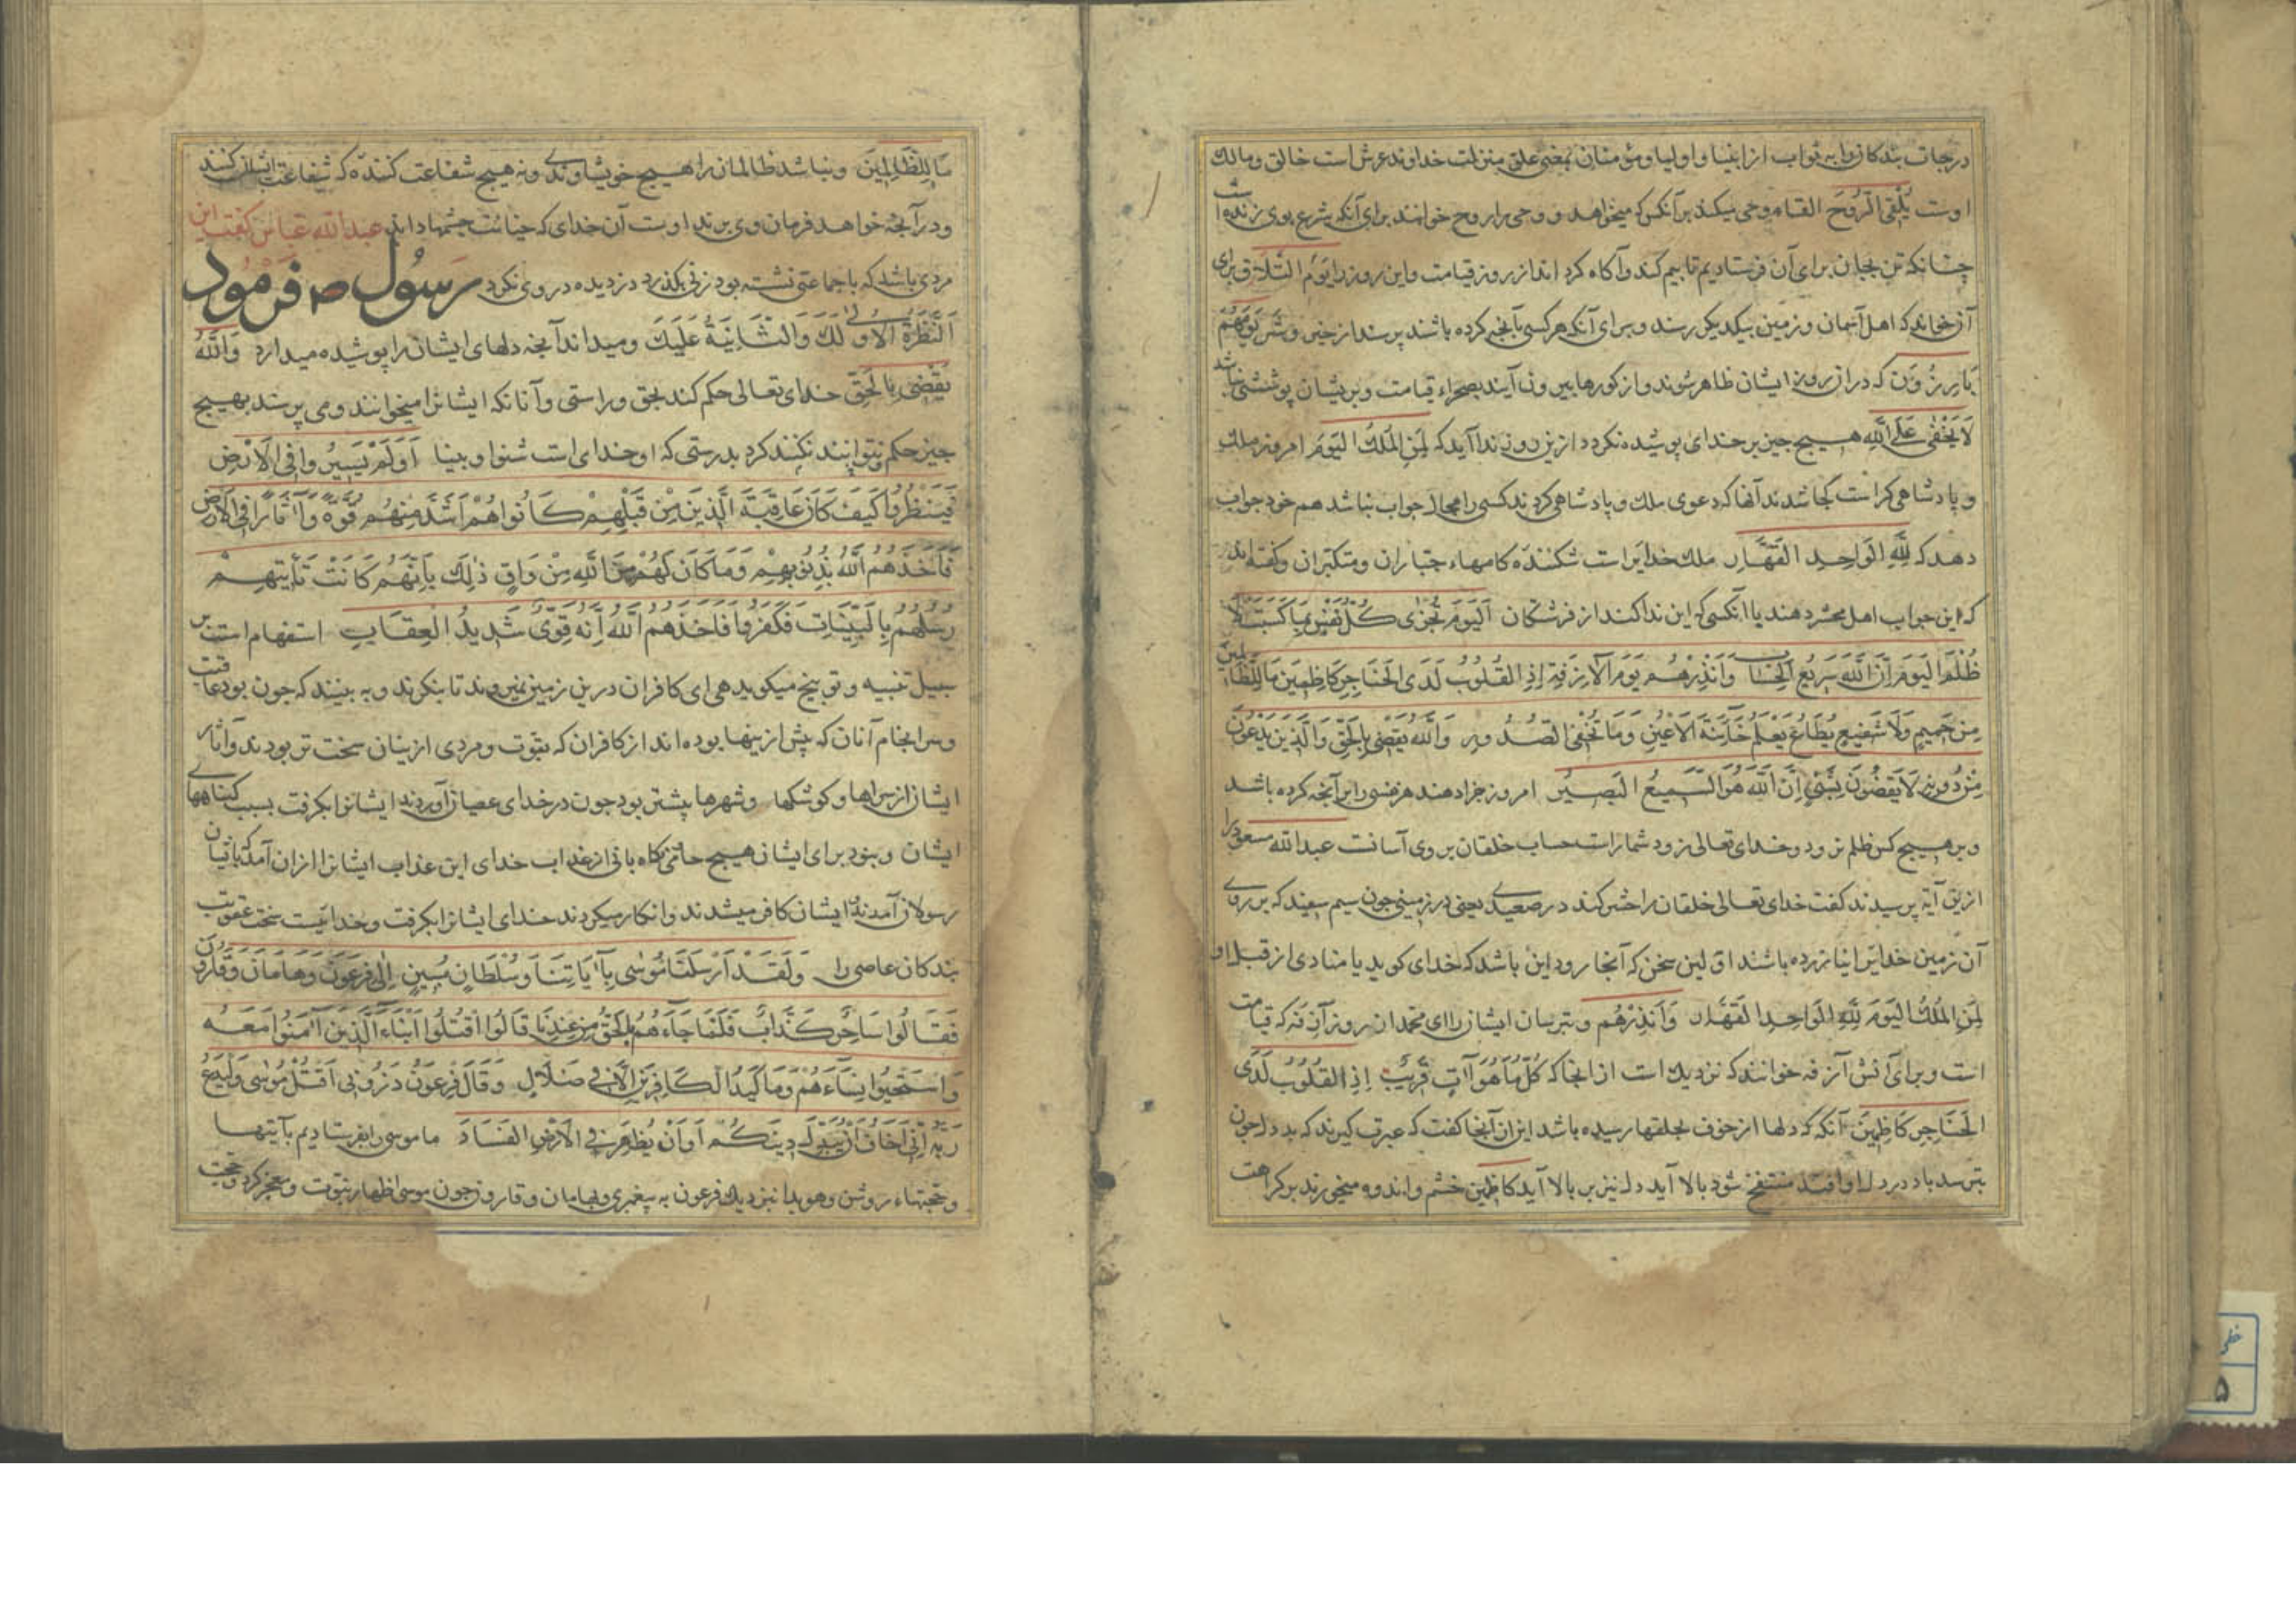 درجات بندکانرا به ثواب از انبیا و اولیا و مؤمنان بمعنی علو منزلت خداوند عرش است خالق و مالک
اوست یُلْقِی الرُّوحَ القاء وحی میکند بر آنکس که میخواهد و وحی را روح خوانند برای آنکه شرع بوی زنده است
چنانکه تن بجان برای آن فرستادیم تا بیم کند و آکاه کرداند از روز قیامت و این روز را یَوْمَ التَّلَاقِ برای
آن خواند که اهل آسمان و زمین بیکدیکر رسند و برای آنکه هر کسی بآنچه کرده باشند برسند از خیر و شر یَوْمَ هُمْ
بَارِزُونَ که در آن روز ایشان ظاهر شوند و از کورها بیرون آیند بصحراء قیامت و بر ایشان پوششی نباشد
لَا یَخْفٰی عَلَی اللّٰهِ هیچ چیز بر خدای پوشیده نکردد از این رو ندا آید که لِمَنِ الْمُلْکُ الْیَوْمَ امروز ملک
و پادشاهی کراست کجا شدند آنها که دعوی ملک و پادشاهی کردند کسی را مجال جواب نباشد هم خود جواب
دهد که لِلّٰهِ الْوَاحِدِ الْقَهَّارِ ملک خدایراست شکننده کامهاء جبّاران و متکبّران و کفته‌اند
که این جواب اهل محشر دهند یا آنکسی که این ندا کند از فرشتکان اَلْیَوْمَ تُجْزٰی کُلُّ نَفْسٍ بِمَا کَسَبَتْ لَا
ظُلْمَ الْیَوْمَ اِنَّ اللّٰهَ سَرِیعُ الْحِسَابِ وَاَنْذِرْهُمْ یَوْمَ الْآزِفَةِ اِذِ الْقُلُوبُ لَدَی الْحَنَاجِرِ کَاظِمِینَ مَا لِلظَّالِمِینَ
مِنْ حَمِیمٍ وَلَا شَفِیعٍ یُطَاعُ یَعْلَمُ خَآئِنَةَ الْاَعْیُنِ وَمَا تُخْفِی الصُّدُورُ وَاللّٰهُ یَقْضِی بِالْحَقِّ وَالَّذِینَ یَدْعُونَ
مِنْ دُونِهِ لَا یَقْضُونَ بِشَیْءٍ اِنَّ اللّٰهَ هُوَ السَّمِیعُ الْبَصِیرُ امروز جزا دهند هر نفسی را بر آنچه کرده باشد
و بر هیچ کس ظلم نرود و خدای تعالی زود شمار است حساب خلقان بر وی آسانست عبدالله مسعود را
ازین آیة پرسیدند کفت خدای تعالی خلقان را حشر کند در صعیدی یعنی در زمینی چون سیم سفید که بر روی
آن زمین خدایرا نیازرده باشند اوّلین سخن که آنجا رود این باشد که خدای کوید یا منادی از قبل او
لِمَنِ الْمُلْکُ الْیَوْمَ لِلّٰهِ الْوَاحِدِ الْقَهَّارِ وَاَنْذِرْهُمْ و بترسان ایشان را ای محمد از روز آزفه که قیامت
است و برای آنش آزفه خوانند که نزدیک است از آنجا که کُلُّ مَا هُوَ آتٍ قَرِیبٌ اِذِ الْقُلُوبُ لَدَی
الْحَنَاجِرِ کَاظِمِینَ آنکه که دلها از خوف بحلقها رسیده باشد از آن آنجا کفت که عبرت کیرند که بددل چون
بترسد باد در دل او افتد منتفخ شود بالا آید دل نیز بر بالا آید کاظمین خشم و اندوه میخورند بر کراهت
مَا لِلظَّالِمِینَ و نباشد ظالمان را هیچ خویشاوندی و نه هیچ شفاعت کننده که شفاعت ایشان کنند
و در آنچه خواهد فرمان وی برند اوست آن خدای که خیانت چشمها داند عبدالله عباس کفت این
مردی باشد که با جماعتی نشسته بود زنی بکذرد دزدیده در وی نکرد رسُول ص فرمُود
اَلنَّظْرَةُ الْاُولٰی لَکَ وَالثَّانِیَةُ عَلَیْکَ و میداند آنچه دلهای ایشان را پوشیده میدارد وَاللّٰهُ
یَقْضِی بِالْحَقِّ خدای تعالی حکم کند بحق و راستی و آنانکه ایشانرا میخوانند و می پرستند بهیچ
چیز حکم نتوانند نکنند کرد بدرستی که او خدای است شنوا و بینا اَوَلَمْ یَسِیرُوا فِی الْاَرْضِ
فَیَنْظُرُوا کَیْفَ کَانَ عَاقِبَةُ الَّذِینَ مِنْ قَبْلِهِمْ کَانُوا هُمْ اَشَدَّ مِنْهُمْ قُوَّةً وَآثَارًا فِی الْاَرْضِ
فَاَخَذَهُمُ اللّٰهُ بِذُنُوبِهِمْ وَمَا کَانَ لَهُمْ مِنَ اللّٰهِ مِنْ وَاقٍ ذٰلِکَ بِاَنَّهُمْ کَانَتْ تَأْتِیهِمْ
رُسُلُهُمْ بِالْبَیِّنَاتِ فَکَفَرُوا فَاَخَذَهُمُ اللّٰهُ اِنَّهُ قَوِیٌّ شَدِیدُ الْعِقَابِ استفهام است بر
سبیل تنبیه و توبیخ میکوید هی ای کافران درین زمین نمیروند تا بنکرند و به بینند که چون بود عاقبت
و سرانجام آنان که پیش از اینها بوده‌اند از کافران که بقوت و مردی از ینان سخت تر بودند و آثار
ایشان از سراها و کوشکها و شهرها بیشتر بود چون در خدای عصیان آوردند ایشانرا بکرفت بسبب کناههای
ایشان و نبود برای ایشان هیچ حامی نکاه بانی از عذاب خدای این عذاب ایشانرا از آن آمد که باتیان
رسولان آمدند ایشان کافر میشدند و انکار میکردند خدای ایشانرا بکرفت و خدائیست سخت عقوبت
بندکان عاصی را وَلَقَدْ اَرْسَلْنَا مُوسٰی بِآیَاتِنَا وَسُلْطَانٍ مُبِینٍ اِلٰی فِرْعَوْنَ وَهَامَانَ وَقَارُونَ
فَقَالُوا سَاحِرٌ کَذَّابٌ فَلَمَّا جَآءَهُمْ بِالْحَقِّ مِنْ عِنْدِنَا قَالُوا اقْتُلُوا اَبْنَآءَ الَّذِینَ آمَنُوا مَعَهُ
وَاسْتَحْیُوا نِسَآءَهُمْ وَمَا کَیْدُ الْکَافِرِینَ اِلَّا فِی ضَلَالٍ وَقَالَ فِرْعَوْنُ ذَرُونِی اَقْتُلْ مُوسٰی وَلْیَدْعُ
رَبَّهُ اِنِّی اَخَافُ اَنْ یُبَدِّلَ دِینَکُمْ اَوْ اَنْ یُظْهِرَ فِی الْاَرْضِ الْفَسَادَ ما موسی را بفرستادیم بآیتها
و حجتهاء روشن و هویدا نزدیک فرعون به پیغمبری و بهامان و قارون چون موسی اظهار نبوت و معجز کرد و حجت
خطی
۵